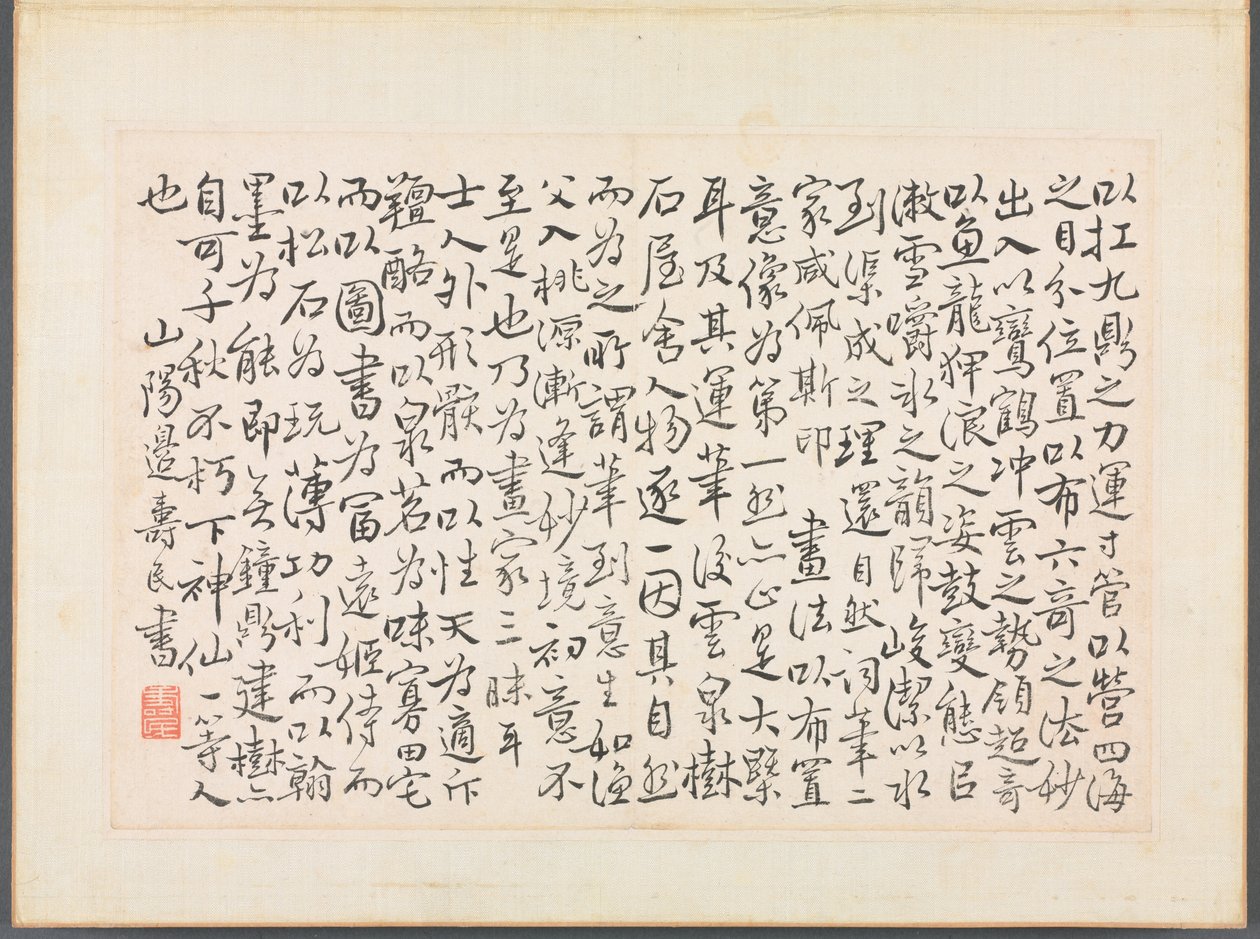 以扛九鼎之力運寸管以營四海
之目分位置以布六奇之法妙
出入以鸞鶴冲雲之勢領超奇
以魚龍狎浪之姿鼓變態㠯
漱雪嚼冰之韻歸峻潔以水
到渠成之理還自然詞章二
家咸佩斯印 畫法以布置
意像為第一然亦止是大槩
耳及其運筆後雲泉樹
石屋舍人物逐一因其自然
而為之所謂筆到意生如漁
父入桃源漸逢妙境初意不
至是也乃為畫家三昧耳
士人外形骸而以性天為適斥
羶酪而以泉茗為味寡田宅
而以圖書為富遠姬侍而
以松石為玩薄功利而以翰
墨為能即無鐘鼎建樹亦
自可千秋不朽下神仙一等人
也 山陽邊壽民書
壽民